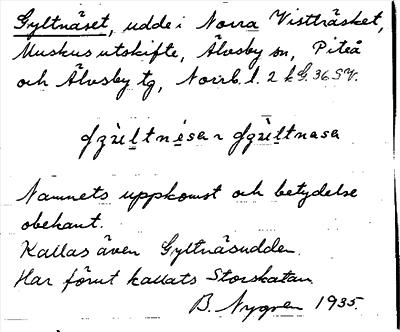 Gyltnäset, udde i Norra Vistträsket,
Muskus utskifte, Älvsby sn, Piteå
och Älvsby tg, Norrb. l. 2 k G. 36 SV.
Namnets uppkomst och betydelse
obekant.
Kallas även Gyltnäsudden.
Har förut kallats Storskatan.
B. Nygren 1935.